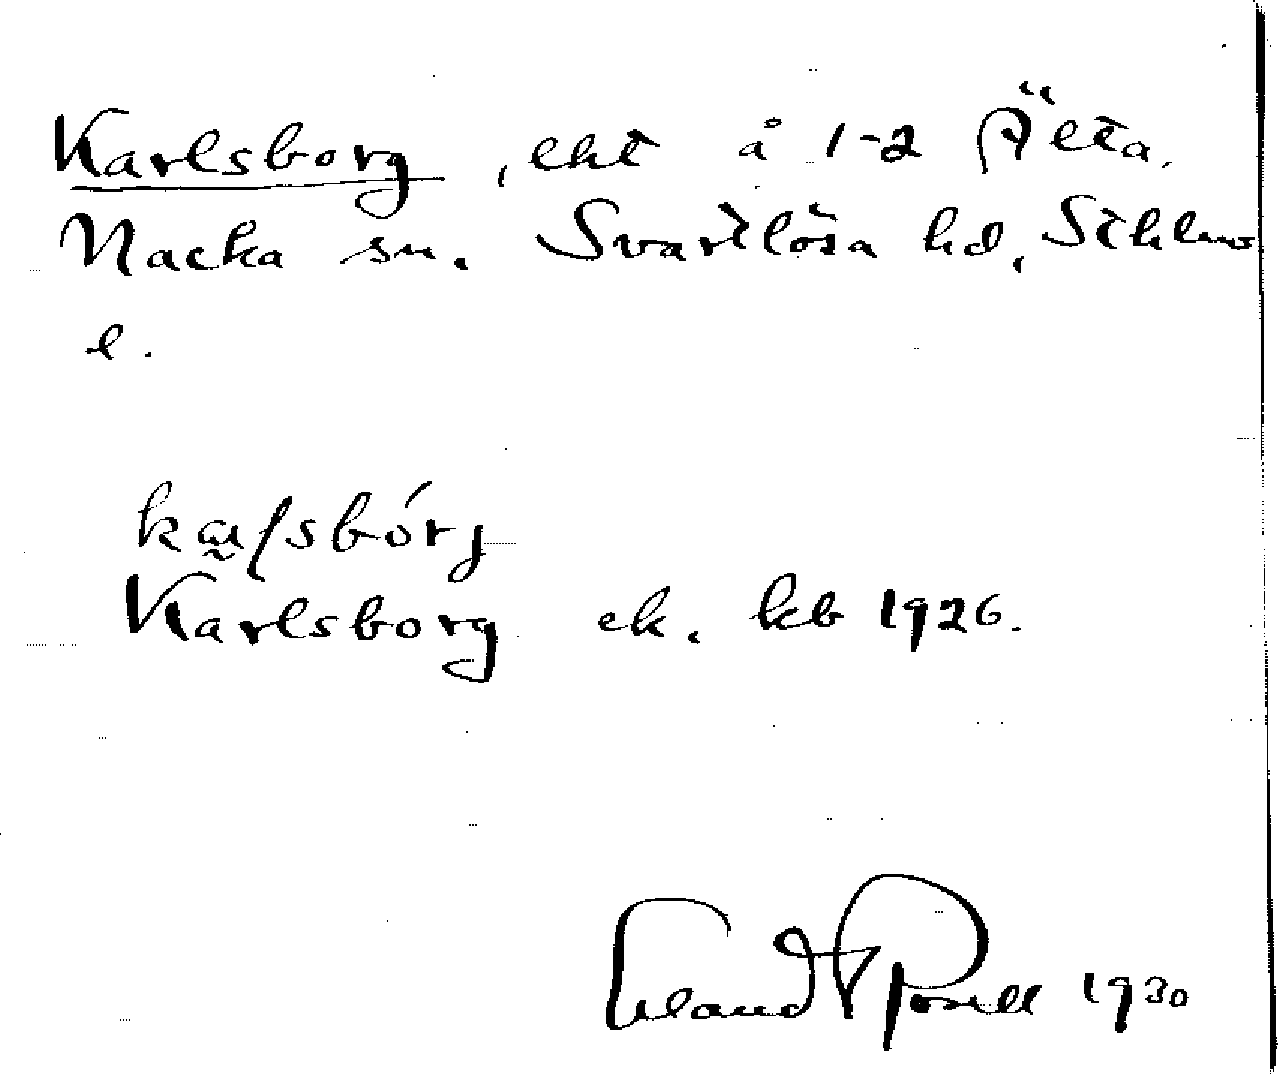 Karlsborg, lht å 1-2 Älta.
Nacka sn. Svartlösa hd, Sthlms
l.
Karlsborg ek. kb 1926.
Erland Rosell 1930